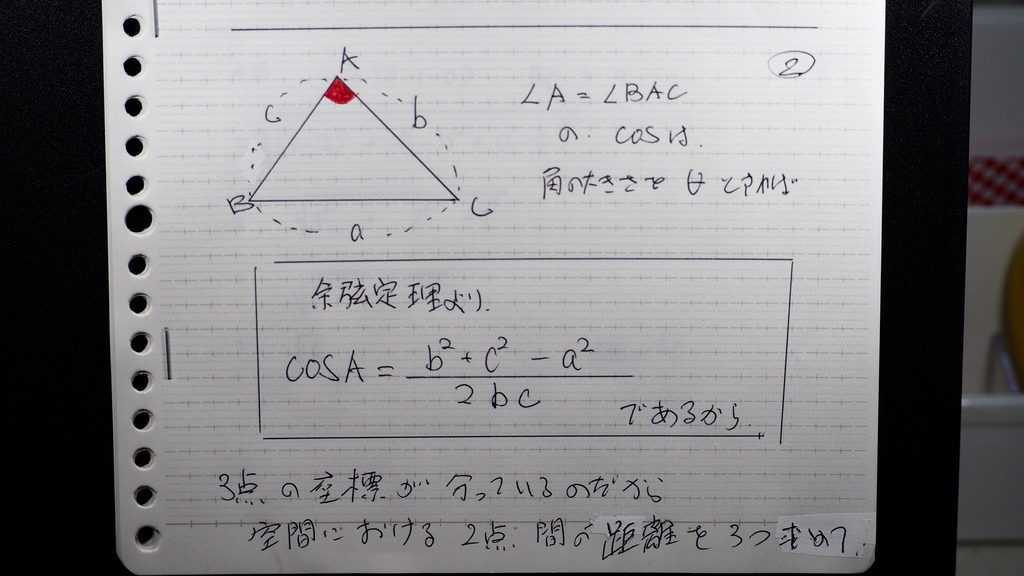 ②
A
c
b
B
C
a
∠A = ∠BAC
の cosは.
角の大きさを θ とすれば
余弦定理より.
cosA = (b² + c² - a²) / 2bc
であるから.
3点の座標が分っているのだから
空間における2点間の距離を3つ求めて.